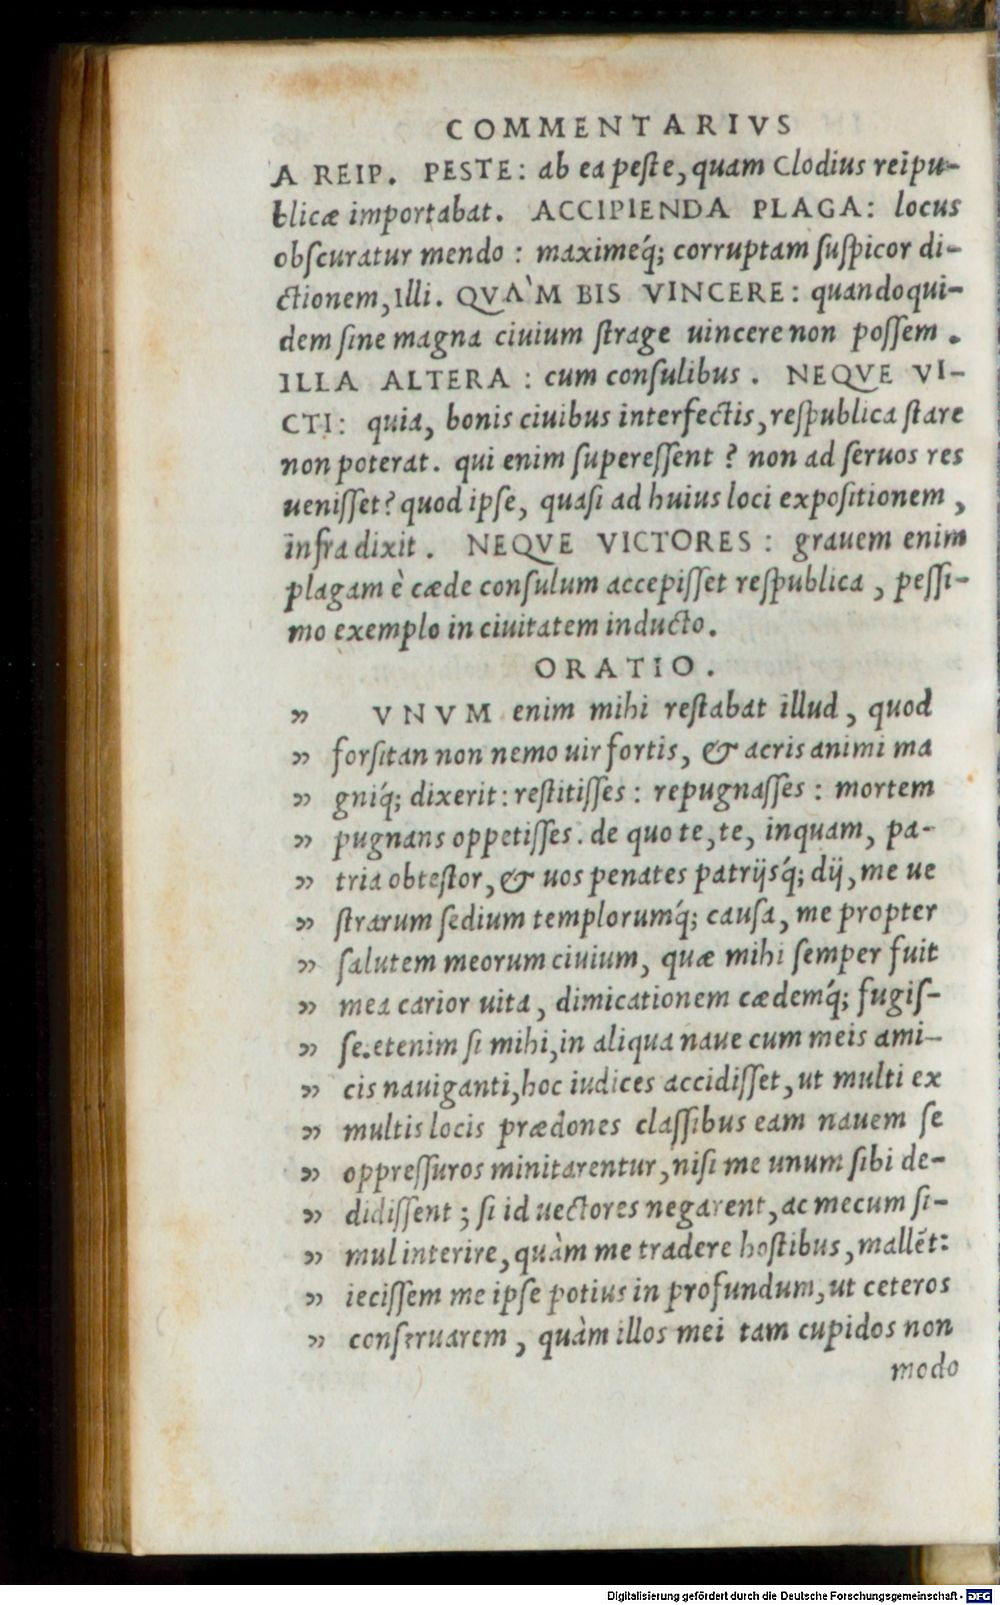 COMMENTARIVS
A REIP. PESTE: ab ea peste, quam Clodius reipu-
blicæ importabat. ACCIPIENDA PLAGA: locus
obscuratur mendo: maximeq́; corruptam suspicor di-
ctionem, Illi. QVÀM BIS VINCERE: quandoqui-
dem sine magna ciuium strage uincere non possem.
ILLA ALTERA: cum consulibus. NEQVE VI-
CTI: quia, bonis ciuibus interfectis, respublica stare
non poterat. qui enim superessent? non ad seruos res
uenisset? quod ipse, quasi ad huius loci expositionem,
infra dixit. NEQVE VICTORES: grauem enim
plagam è cæde consulum accepisset respublica, pessi-
mo exemplo in ciuitatem inducto.
ORATIO.
” VNVM enim mihi restabat illud, quod
” forsitan non nemo uir fortis, & acris animi ma
” gniq́; dixerit: restitisses: repugnasses: mortem
” pugnans oppetisses. de quo te, te, inquam, pa-
” tria obtestor, & uos penates patrijsq́; dij, me ue
” strarum sedium templorumq́; causa, me propter
” salutem meorum ciuium, quæ mihi semper fuit
” mea carior uita, dimicationem cædemq́; fugis-
” se. etenim si mihi, in aliqua naue cum meis ami-
” cis nauiganti, hoc iudices accidisset, ut multi ex
” multis locis prædones classibus eam nauem se
” oppressuros minitarentur, nisi me unum sibi de-
” didissent; si id uectores negarent, ac mecum si-
” mul interire, quàm me tradere hostibus, mallēt:
” iecissem me ipse potius in profundum, ut ceteros
” conseruarem, quàm illos mei tam cupidos non
modo
Digitalisierung gefördert durch die Deutsche Forschungsgemeinschaft - DFG